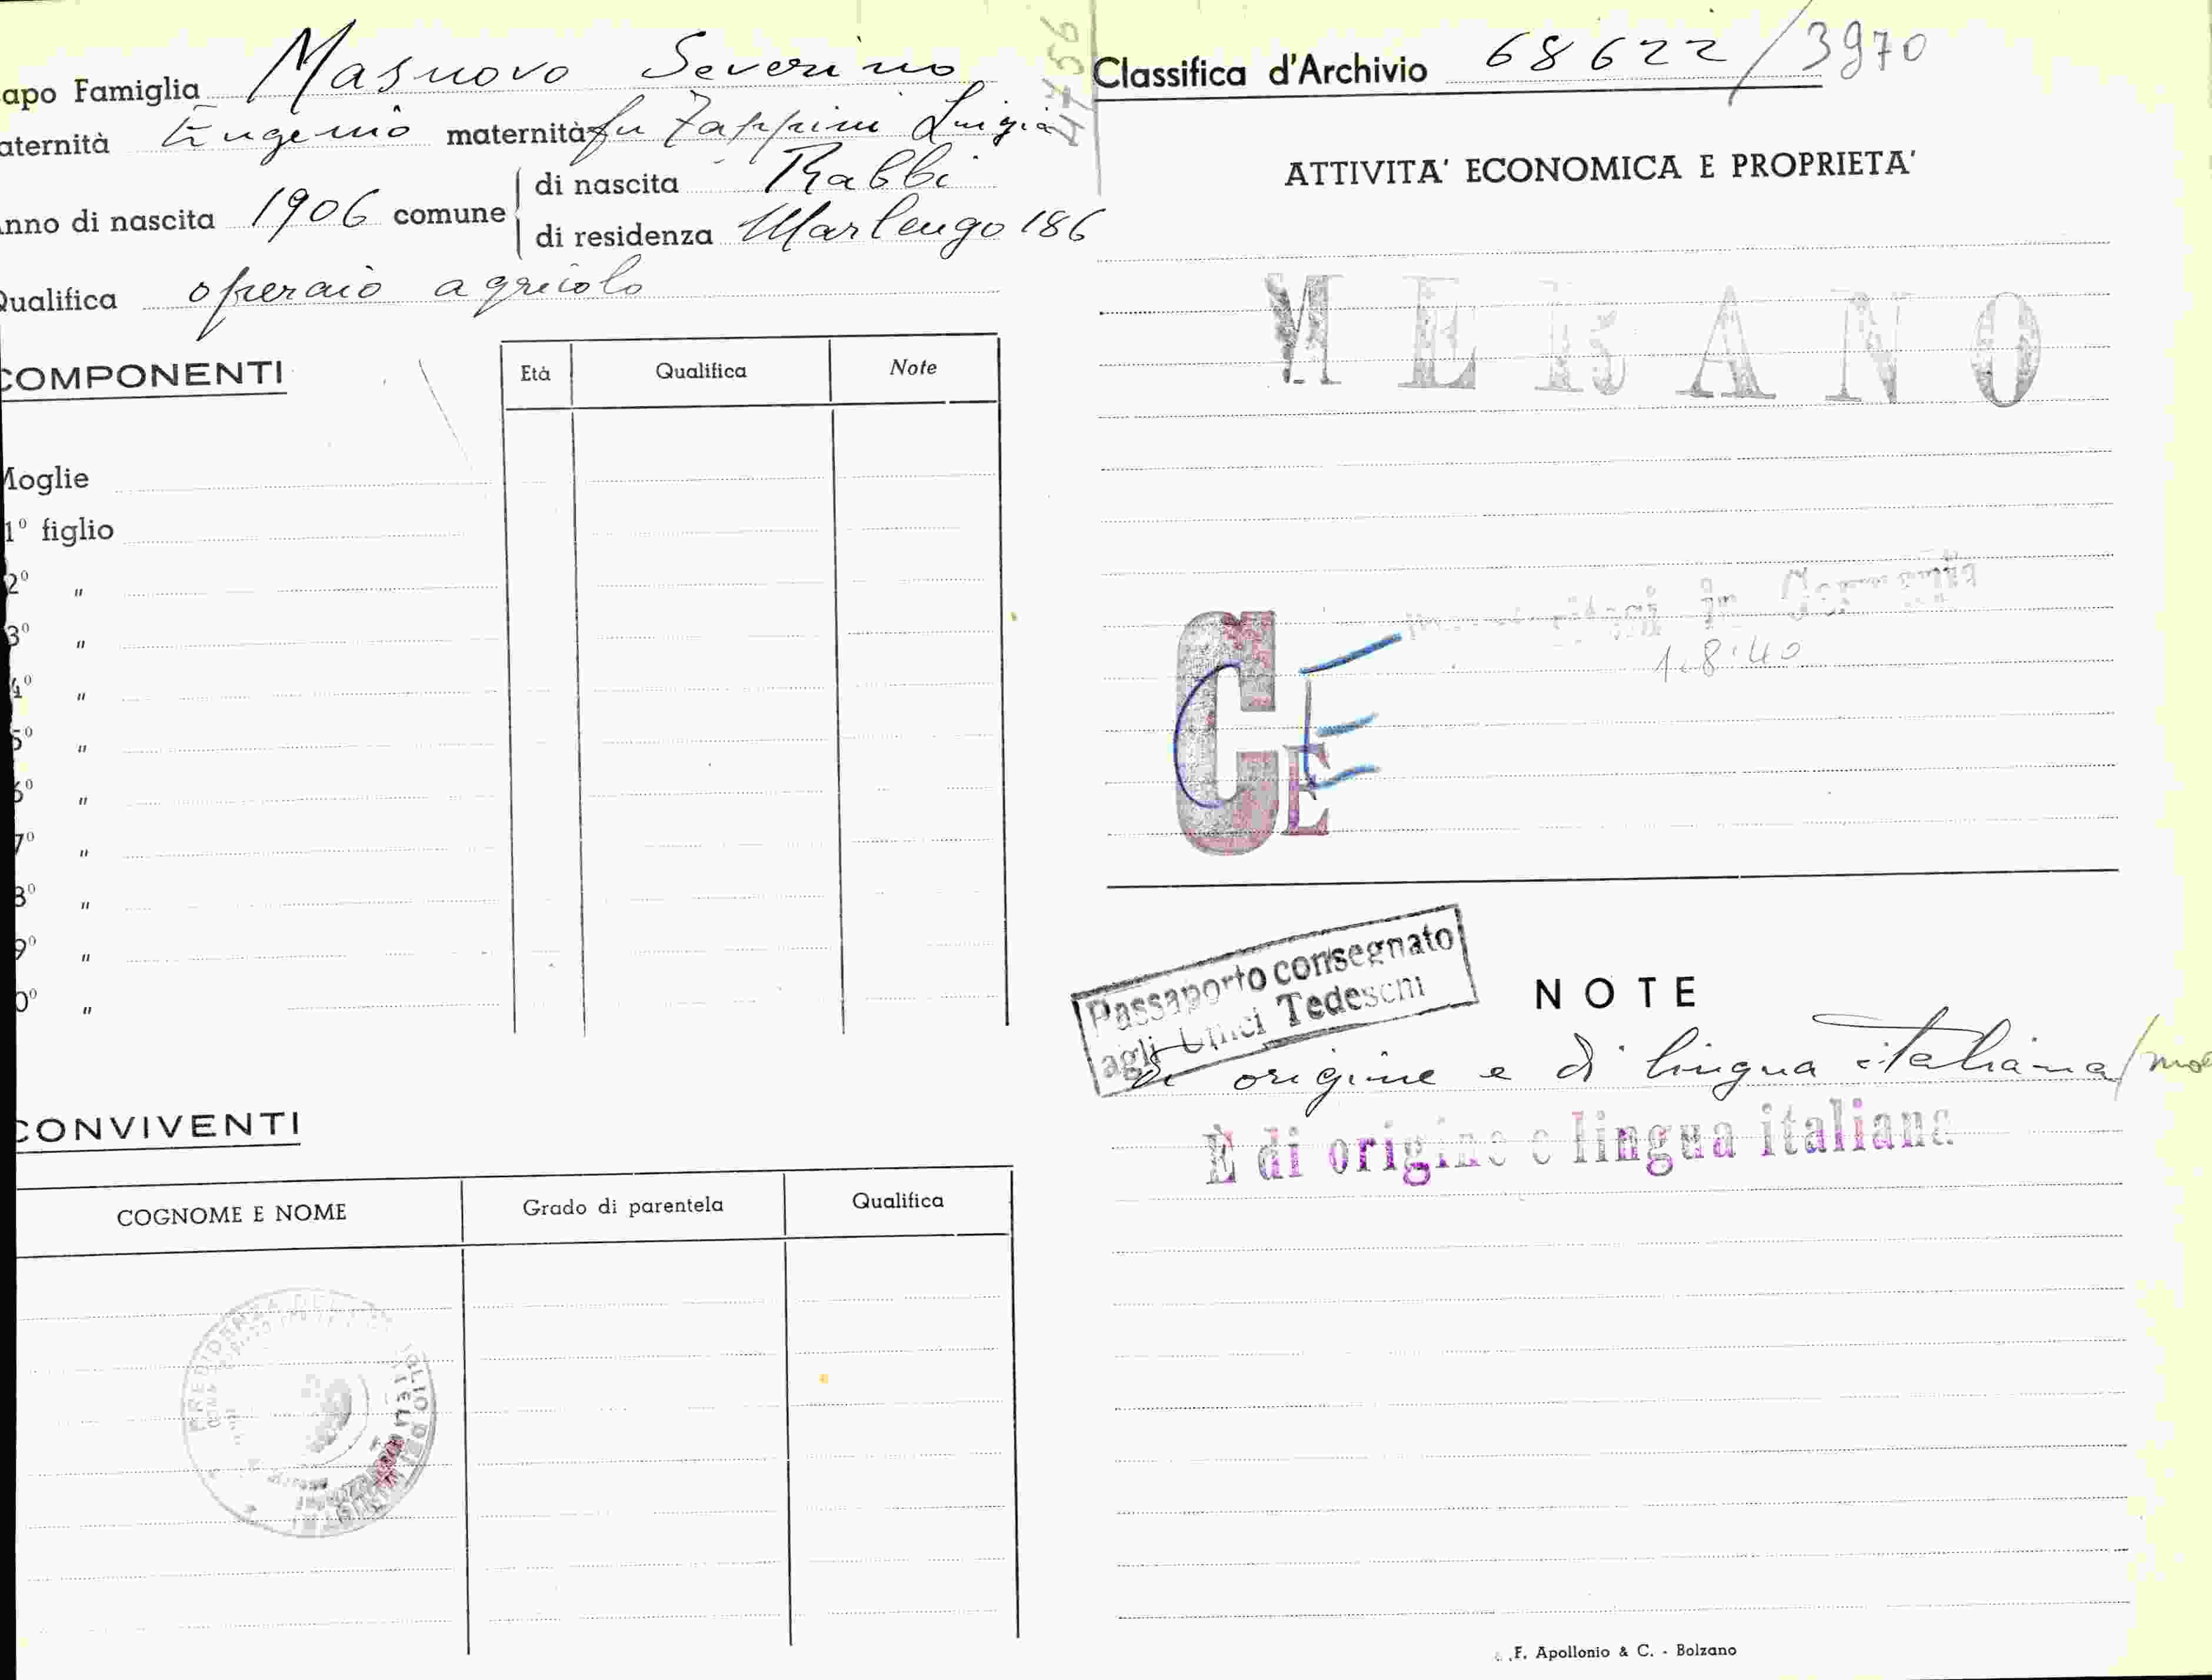 apo Famiglia Masnovo Severino
aternità Eugenio maternità fu Zappini Luigia
nno di nascita 1906 comune di nascita Rabbi
di residenza Marlengo 186
Qualifica operaio agricolo
COMPONENTI
Età Qualifica Note
Moglie
1º figlio
2º "
3º "
4º "
5º "
6º "
7º "
8º "
9º "
0º "
CONVIVENTI
COGNOME E NOME Grado di parentela Qualifica
47456
Classifica d'Archivio 68622/3970
ATTIVITA' ECONOMICA E PROPRIETA'
MERANO
1.8.40
CE
CE
Passaporto consegnato
agli Uffici Tedeschi
NOTE
Di origine e di lingua italiana/
È di origine e lingua italiana
F. Apollonio & C. - Bolzano